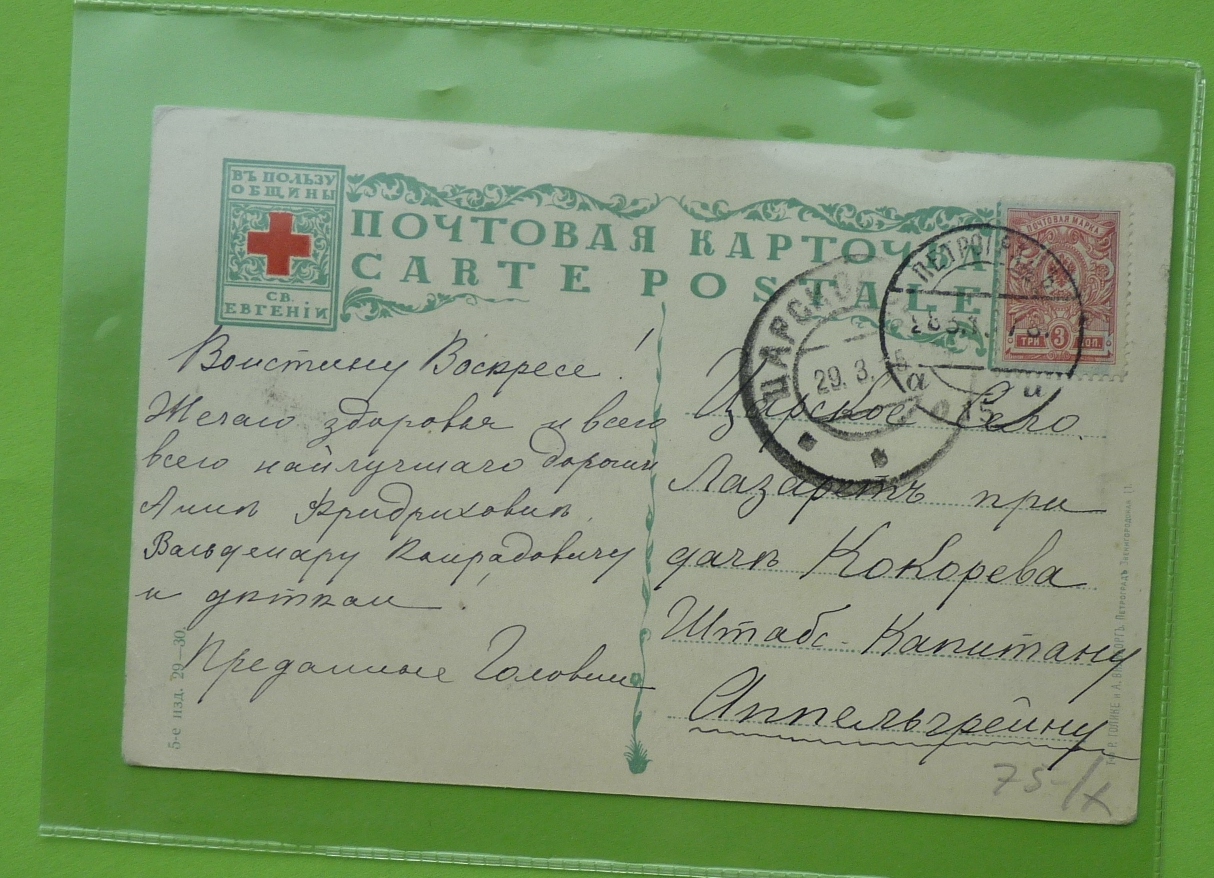 ВЪ ПОЛЬЗУ
ОБЩИНЫ
СВ.
ЕВГЕНІИ
ПОЧТОВАЯ КАРТОЧКА
CARTE POSTALE
ПОЧТОВАЯ МАРКА
ТРИ 3 КОП.
ПЕТРОГРАДЪ
ЦАРСКОЕ
29. 3.
15
Воистину Воскресе!
Желаю здоровья и всего
всего наилучшаго дорогим
Аннѣ Фридриховнѣ,
Вальдемару Конрадовичу
и дѣткам
Преданные Головин
Царское Село.
Лазаретъ при
дачѣ Кокорева
Штабс-Капитану
Аппельгрейну
5-е изд. 29—30.
Т-во Р. ГОЛИКЕ и А. ВИЛЬБОРГЪ. Петроградъ Звенигородская 11.
75-/х